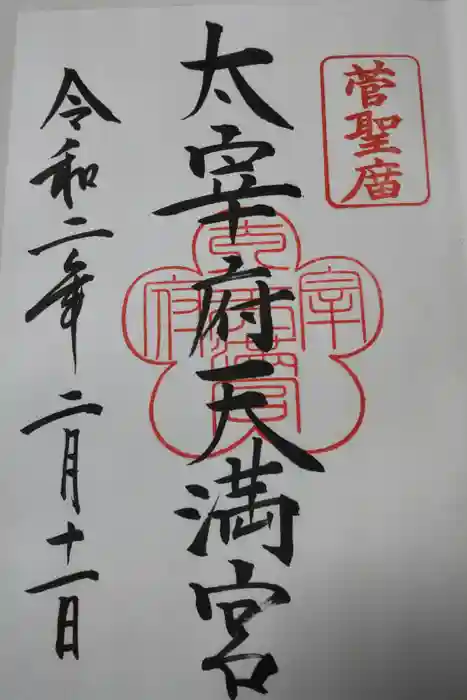 菅聖庿
太宰府天満宮
令和二年二月十一日